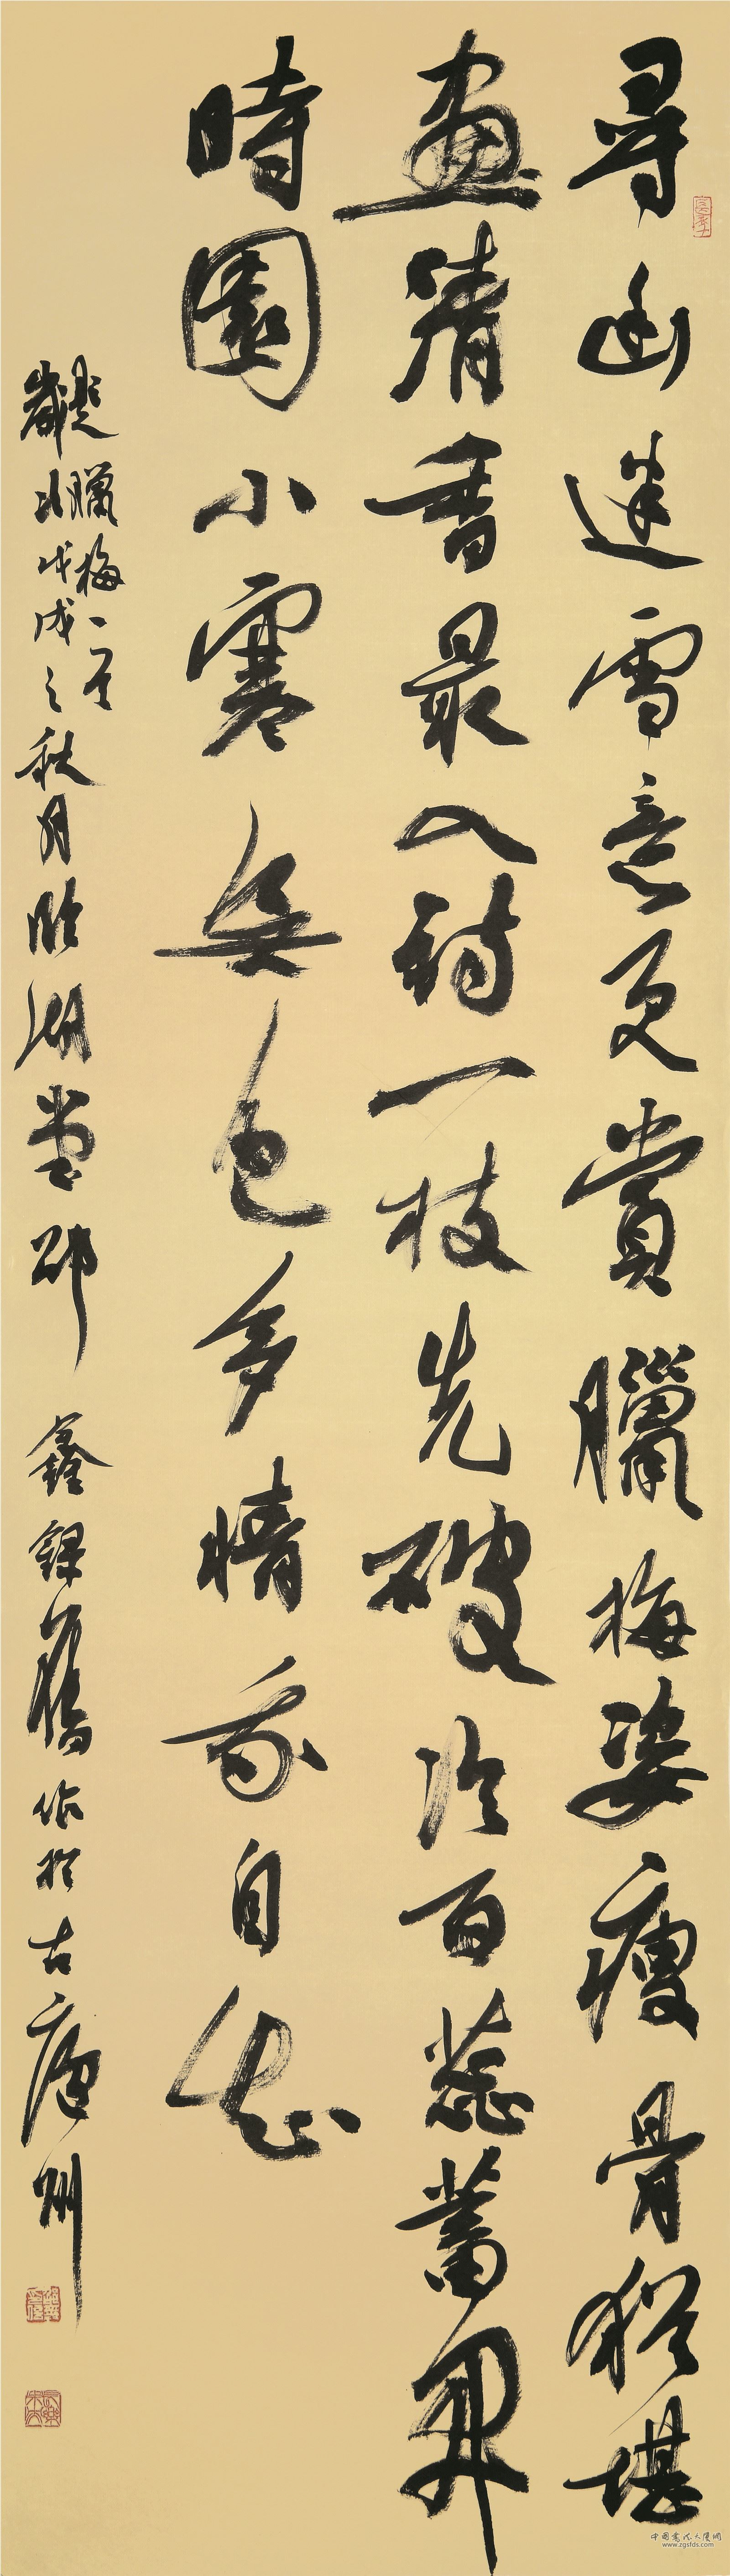 尋幽迷雪意更賞臘梅姿瘦骨猶堪
畫清香最入詩一枝先破冷百蕊蓄開
時園小寒無色多情我自知
題臘梅一首
歲次戊戌之秋月湖堂邵鑫錄舊作於古廬州
中國書法大廈網
www.zgsfds.com